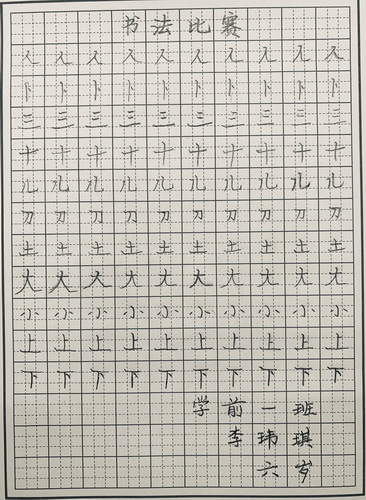 书法比赛
入入入入入入入入入入
卜卜卜卜卜卜卜卜卜卜
三三三三三三三三三三
十十十十十十十十十十
儿儿儿儿儿儿儿儿儿儿
刀刀刀刀刀刀刀刀刀刀
土土土土土土土土土土
大大大大大大大大大大
小小小小小小小小小小
上上上上上上上上上上
下下下下下下下下下下
学前一班
李玮琪
六岁